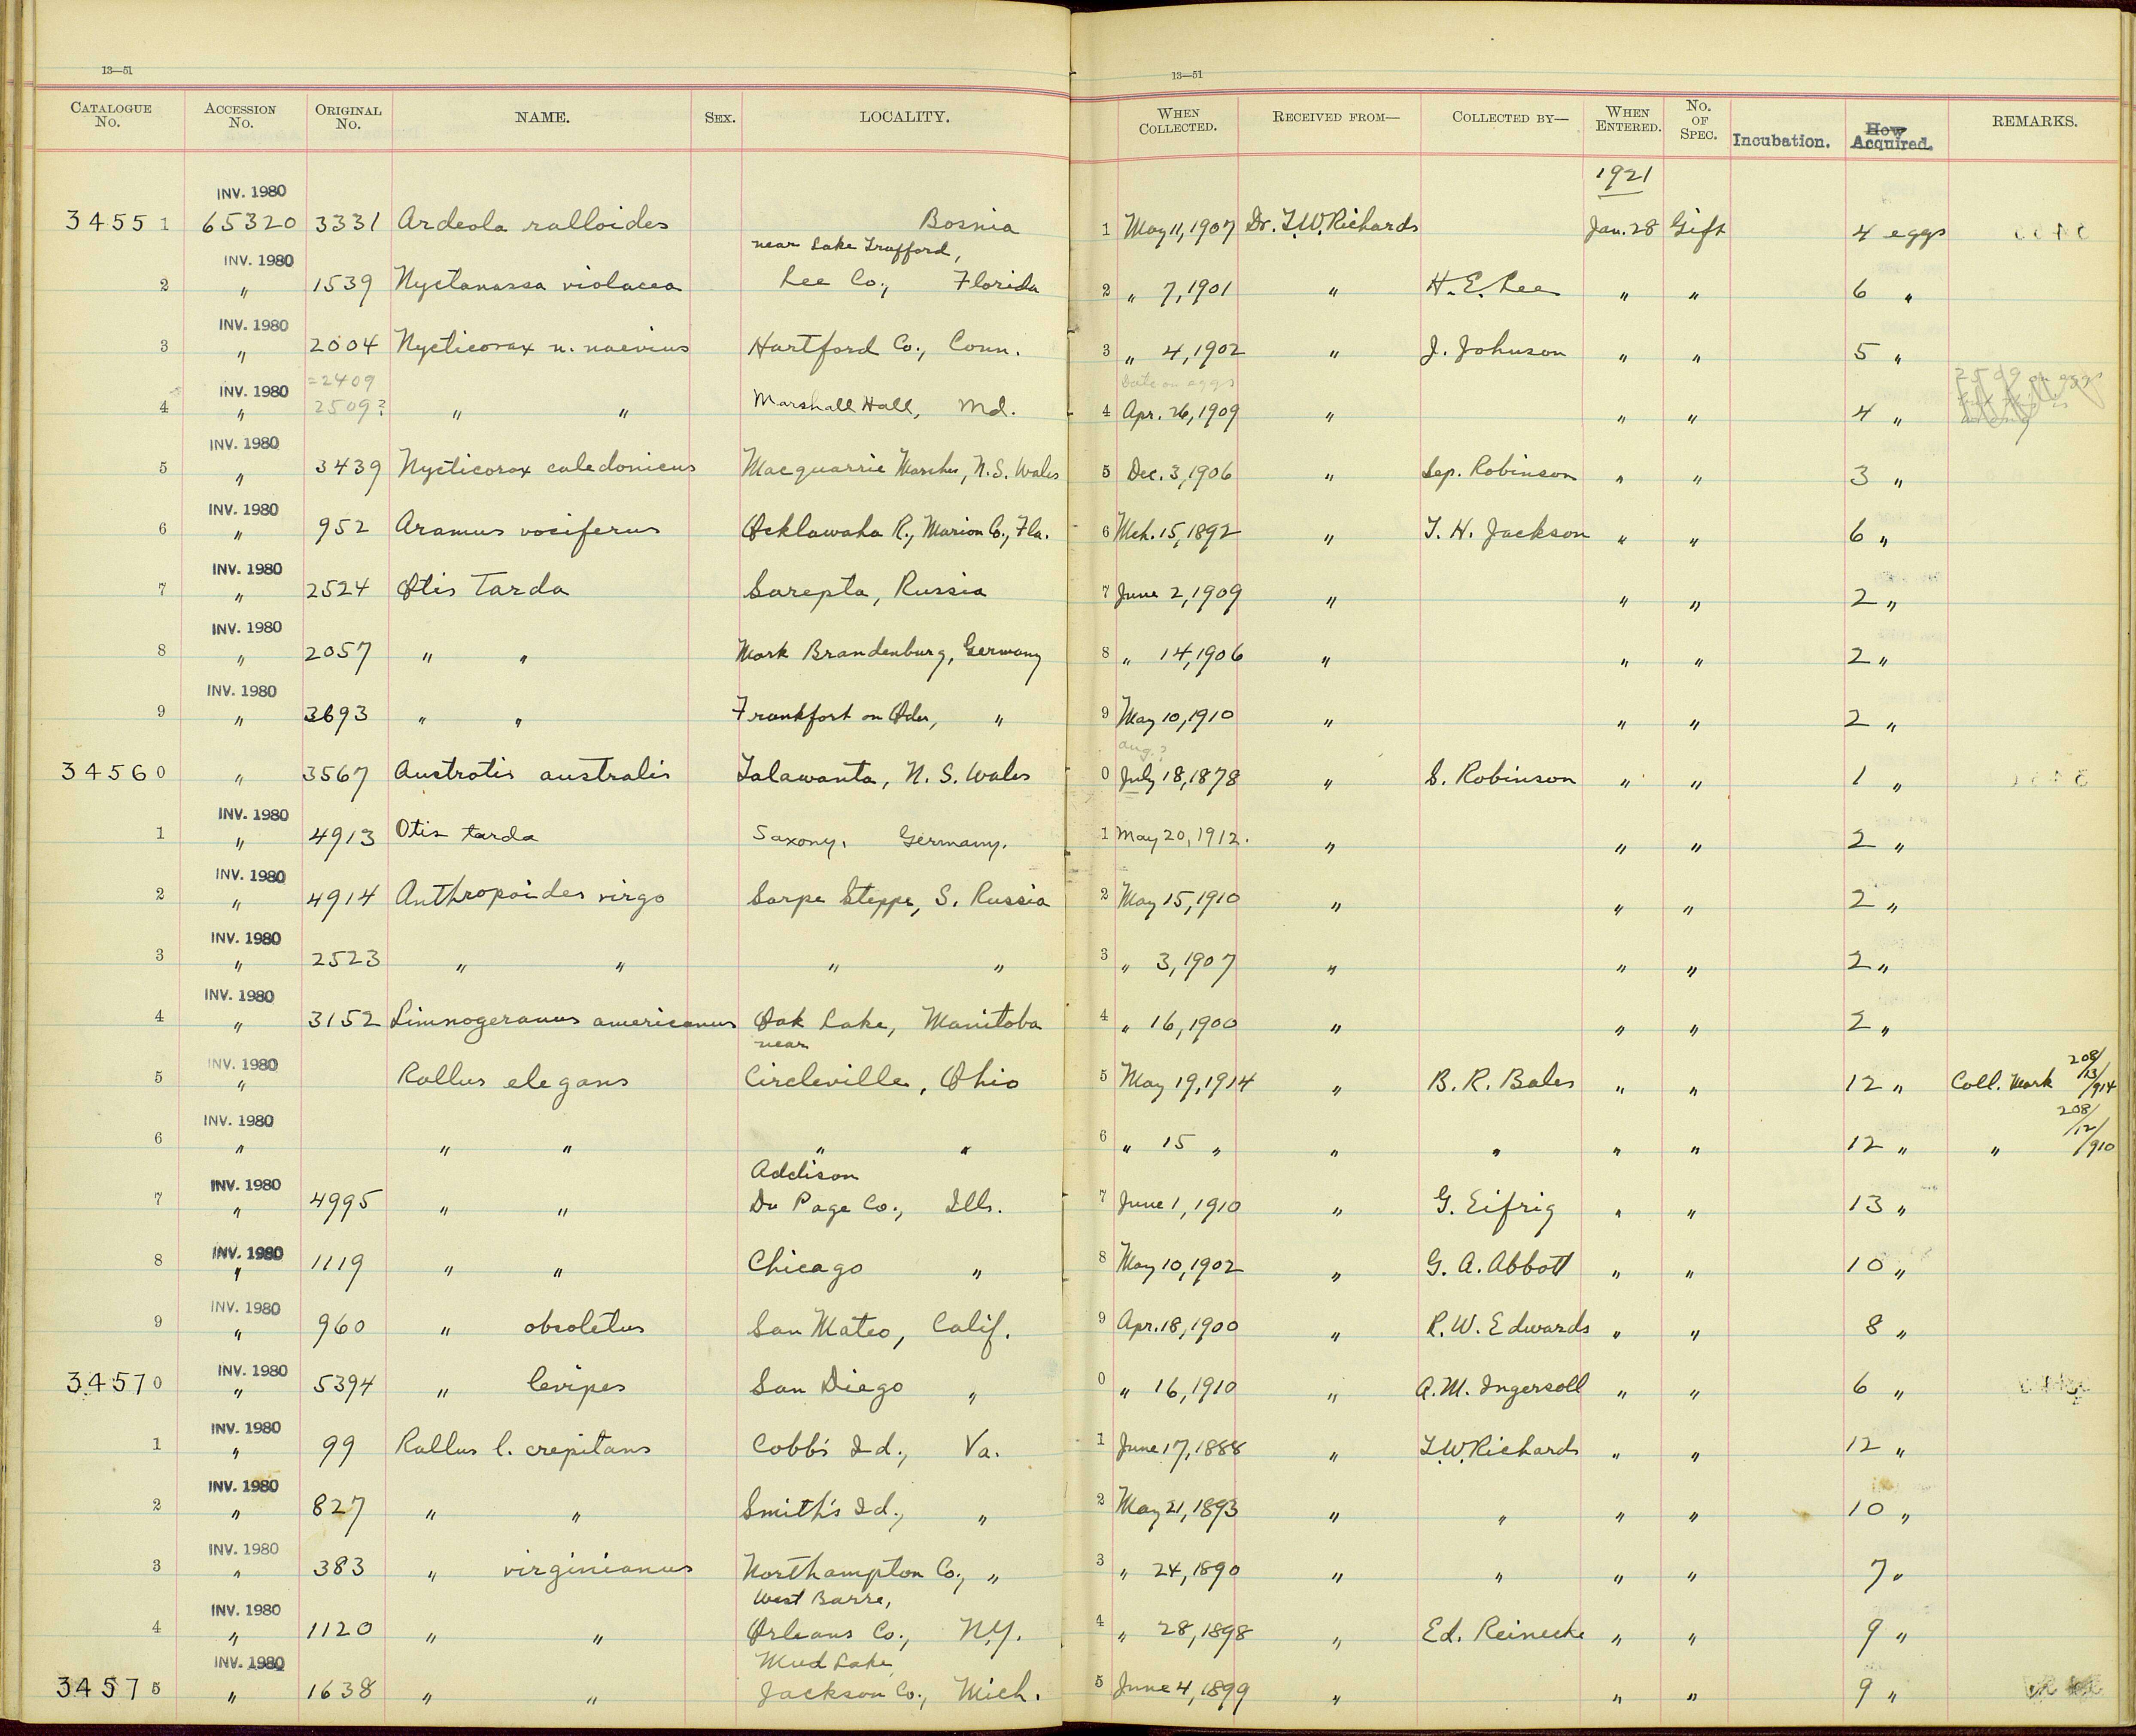 13—51
13—51
CATALOGUE No. ACCESSION No. ORIGINAL No. NAME. SEX. LOCALITY. WHEN COLLECTED. RECEIVED FROM— COLLECTED BY— WHEN ENTERED. No. OF SPEC. Incubation. How Acquired. REMARKS.
1921
INV. 1980
34551 65320 3331 Ardeola ralloides Bosnia 1 May 11, 1907 Dr. T.W. Richards Jan. 28 Gift 4 eggs
INV. 1980 near Lake Trafford,
2 " 1539 Nyctanassa violacea Lee Co., Florida 2 " 7, 1901 " H. E. Lee " " 6 "
INV. 1980
3 " 2004 Nycticorax n. naevius Hartford Co., Conn. 3 " 4, 1902 " J. Johnson " " 5 "
INV. 1980 =2409 Date on eggs 2509 on eggs
4 " 2509? " " Marshall Hall, Md. 4 Apr. 26, 1909 " " " 4 "
INV. 1980
5 " 3439 Nycticorax caledonicus Macquarrie Marshes, N.S. Wales 5 Dec. 3, 1906 " Sep. Robinson " " 3 "
INV. 1980
6 " 952 Aramus vociferus Ocklawaha R., Marion Co., Fla. 6 Mch. 15, 1892 " T. H. Jackson " " 6 "
INV. 1980
7 " 2524 Otis tarda Sarepta, Russia 7 June 2, 1909 " " " 2 "
INV. 1980
8 " 2057 " " Mark Brandenburg, Germany 8 " 14, 1906 " " " 2 "
INV. 1980
9 " 3693 " " Frankfort on Oder, " 9 May 10, 1910 " " " 2 "
Aug.?
34560 " 3567 Austrotis australis Talawanta, N. S. Wales 0 July 18, 1878 " S. Robinson " " 1 "
INV. 1980
1 " 4913 Otis tarda Saxony, Germany. 1 May 20, 1912. " " " 2 "
INV. 1980
2 " 4914 Anthropoides virgo Sarpe Steppe, S. Russia 2 May 15, 1910 " " " 2 "
INV. 1980
3 " 2523 " " " " 3 " 3, 1907 " " " 2 "
INV. 1980
4 " 3152 Limnogeranus americanus Oak Lake, Manitoba 4 " 16, 1900 " " " 2 "
INV. 1980 near
5 " Rallus elegans Circleville, Ohio 5 May 19, 1914 " B. R. Bales " " 12 " Coll. Mark 208/13/914
INV. 1980
6 " " " " " 6 " 15 " " " " " 12 " " 208/12/910
INV. 1980 Addison
7 " 4995 " " Du Page Co., Ills. 7 June 1, 1910 " G. Eifrig " " 13 "
INV. 1980
8 " 1119 " " Chicago " 8 May 10, 1902 " G. A. Abbott " " 10 "
INV. 1980
9 " 960 " obsoletus San Mateo, Calif. 9 Apr. 18, 1900 " R. W. Edwards " " 8 "
INV. 1980
34570 " 5394 " levipes San Diego " 0 " 16, 1910 " A. M. Ingersoll " " 6 "
INV. 1980
1 " 99 Rallus l. crepitans Cobb's Id., Va. 1 June 17, 1888 " T.W. Richards " " 12 "
INV. 1980
2 " 827 " " Smith's Id., " 2 May 21, 1893 " " " " 10 "
INV. 1980
3 " 383 " virginianus Northampton Co., " 3 " 24, 1890 " " " " 7 "
INV. 1980 West Barre,
4 " 1120 " " Orleans Co., N.Y. 4 " 28, 1898 " Ed. Reinecke " " 9 "
INV. 1980 Mud Lake,
34575 " 1638 " " Jackson Co., Mich. 5 June 4, 1899 " " " 9 "